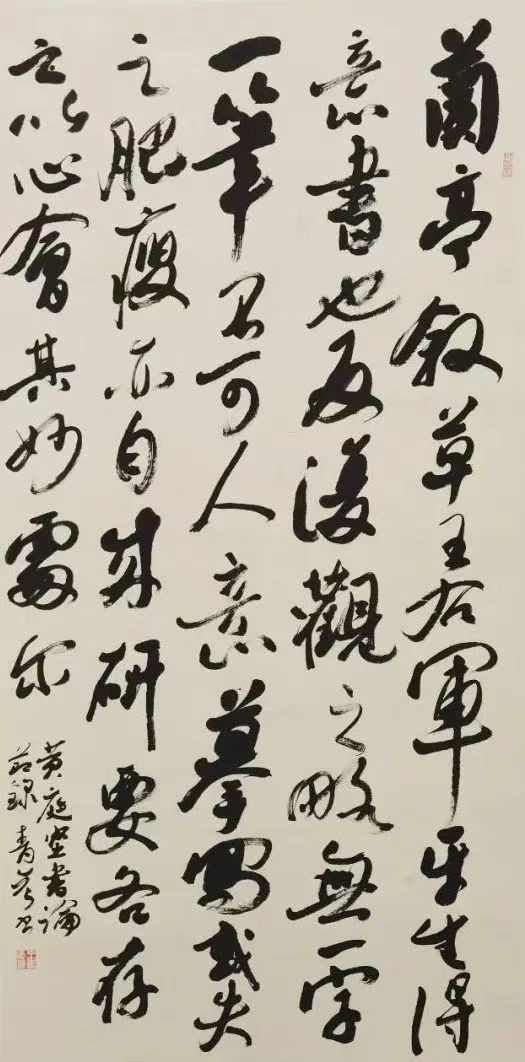 蘭亭敘草王右軍平生得
意書也反復觀之略無一字
一筆不可人意摹寫或失
之肥瘦亦自成研要各存
之以心會其妙處尔
黃庭堅書論
節録 青